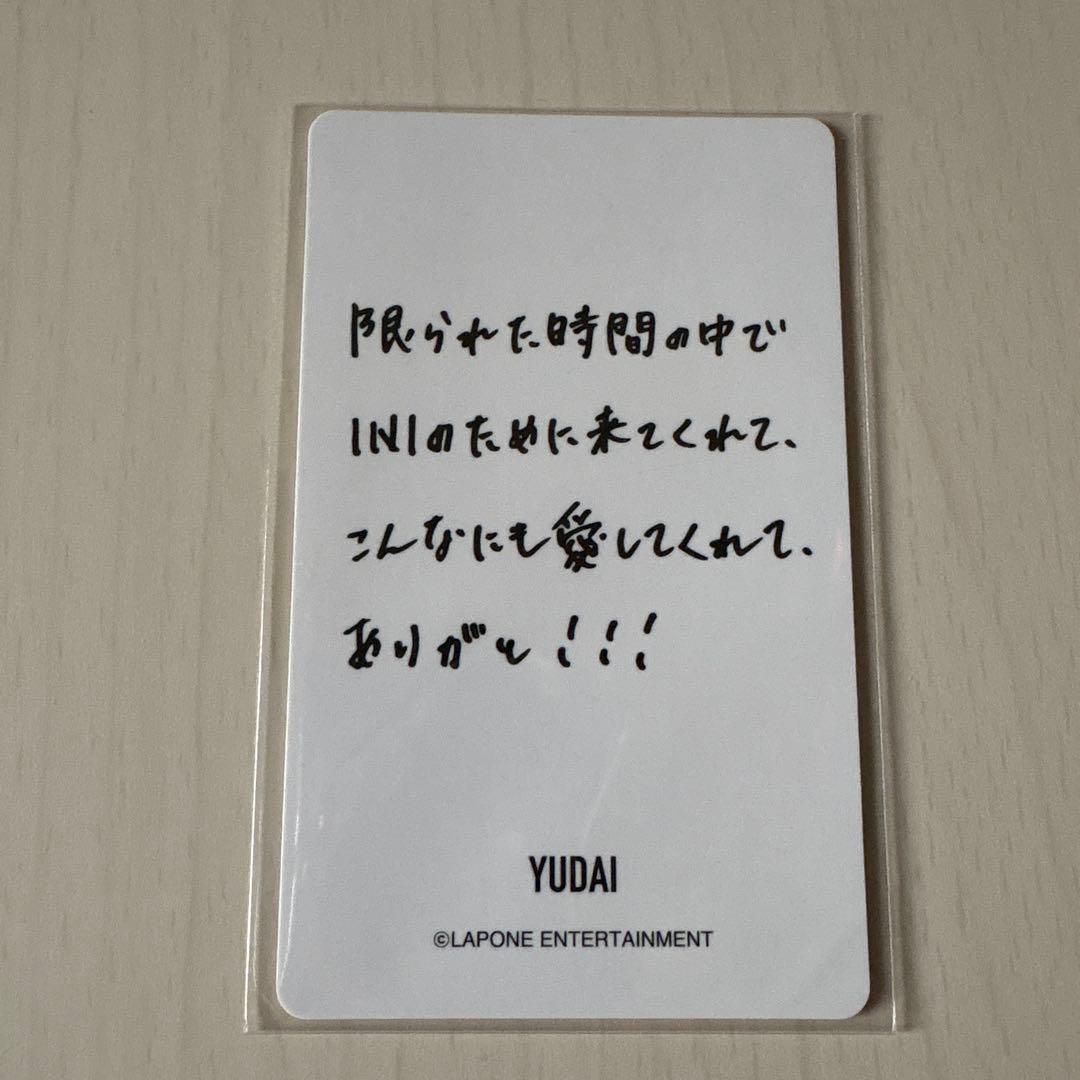 限られた時間の中で
INIのために来てくれて、
こんなにも愛してくれて、
ありがと!!!
YUDAI
©LAPONE ENTERTAINMENT